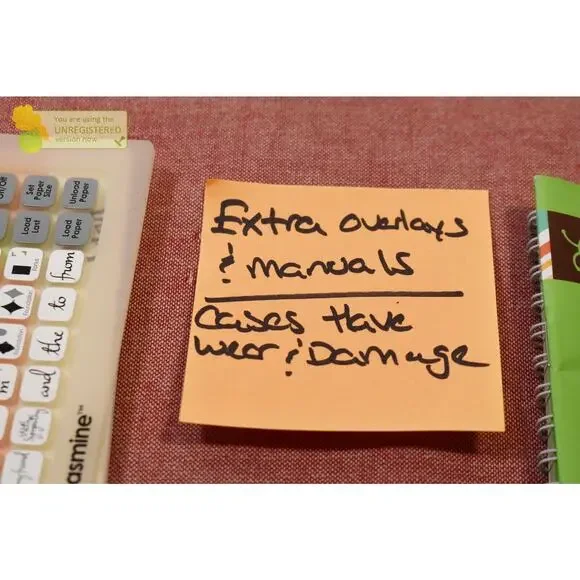 You are using the
UNREGISTERED
version now.
On/Off
Set Paper Size
Unload Paper
Load Last
Load Paper
from
to
the
and
asmine™
Extra overlays
& manuals
Cases Have
wear & Damage